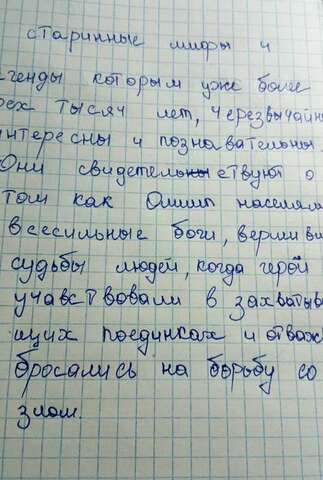 старинные мифы и
генды которым уже более
рех тысяч лет, черезвычайн
нтересны и познавательны.
Они свидетельствуют о
том как Олимп населял
всесильные боги, вершив
судьбы людей, когда герои
учавствовали в захватыв
щих поединках и отваж
бросались на борьбу со
злом.